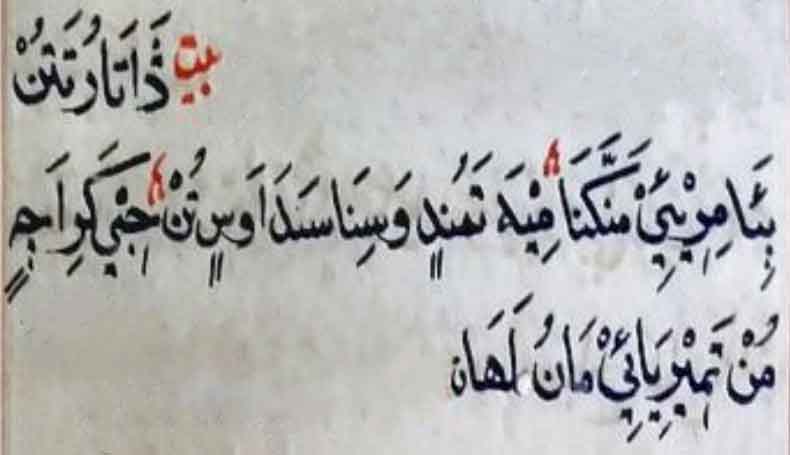 بيت ذَاتَارُ تَتُنْ
بِئَا مِرِيْئِيْ مَنَّكَنَا مِيْهَ تَمُندٍ وَسِنَا سَدَا وَسٍ تُنْ جِيْ كَرِ اَچٍ
مُنْ تَمِيْرِيَائِيْ مَانُ لَهَان